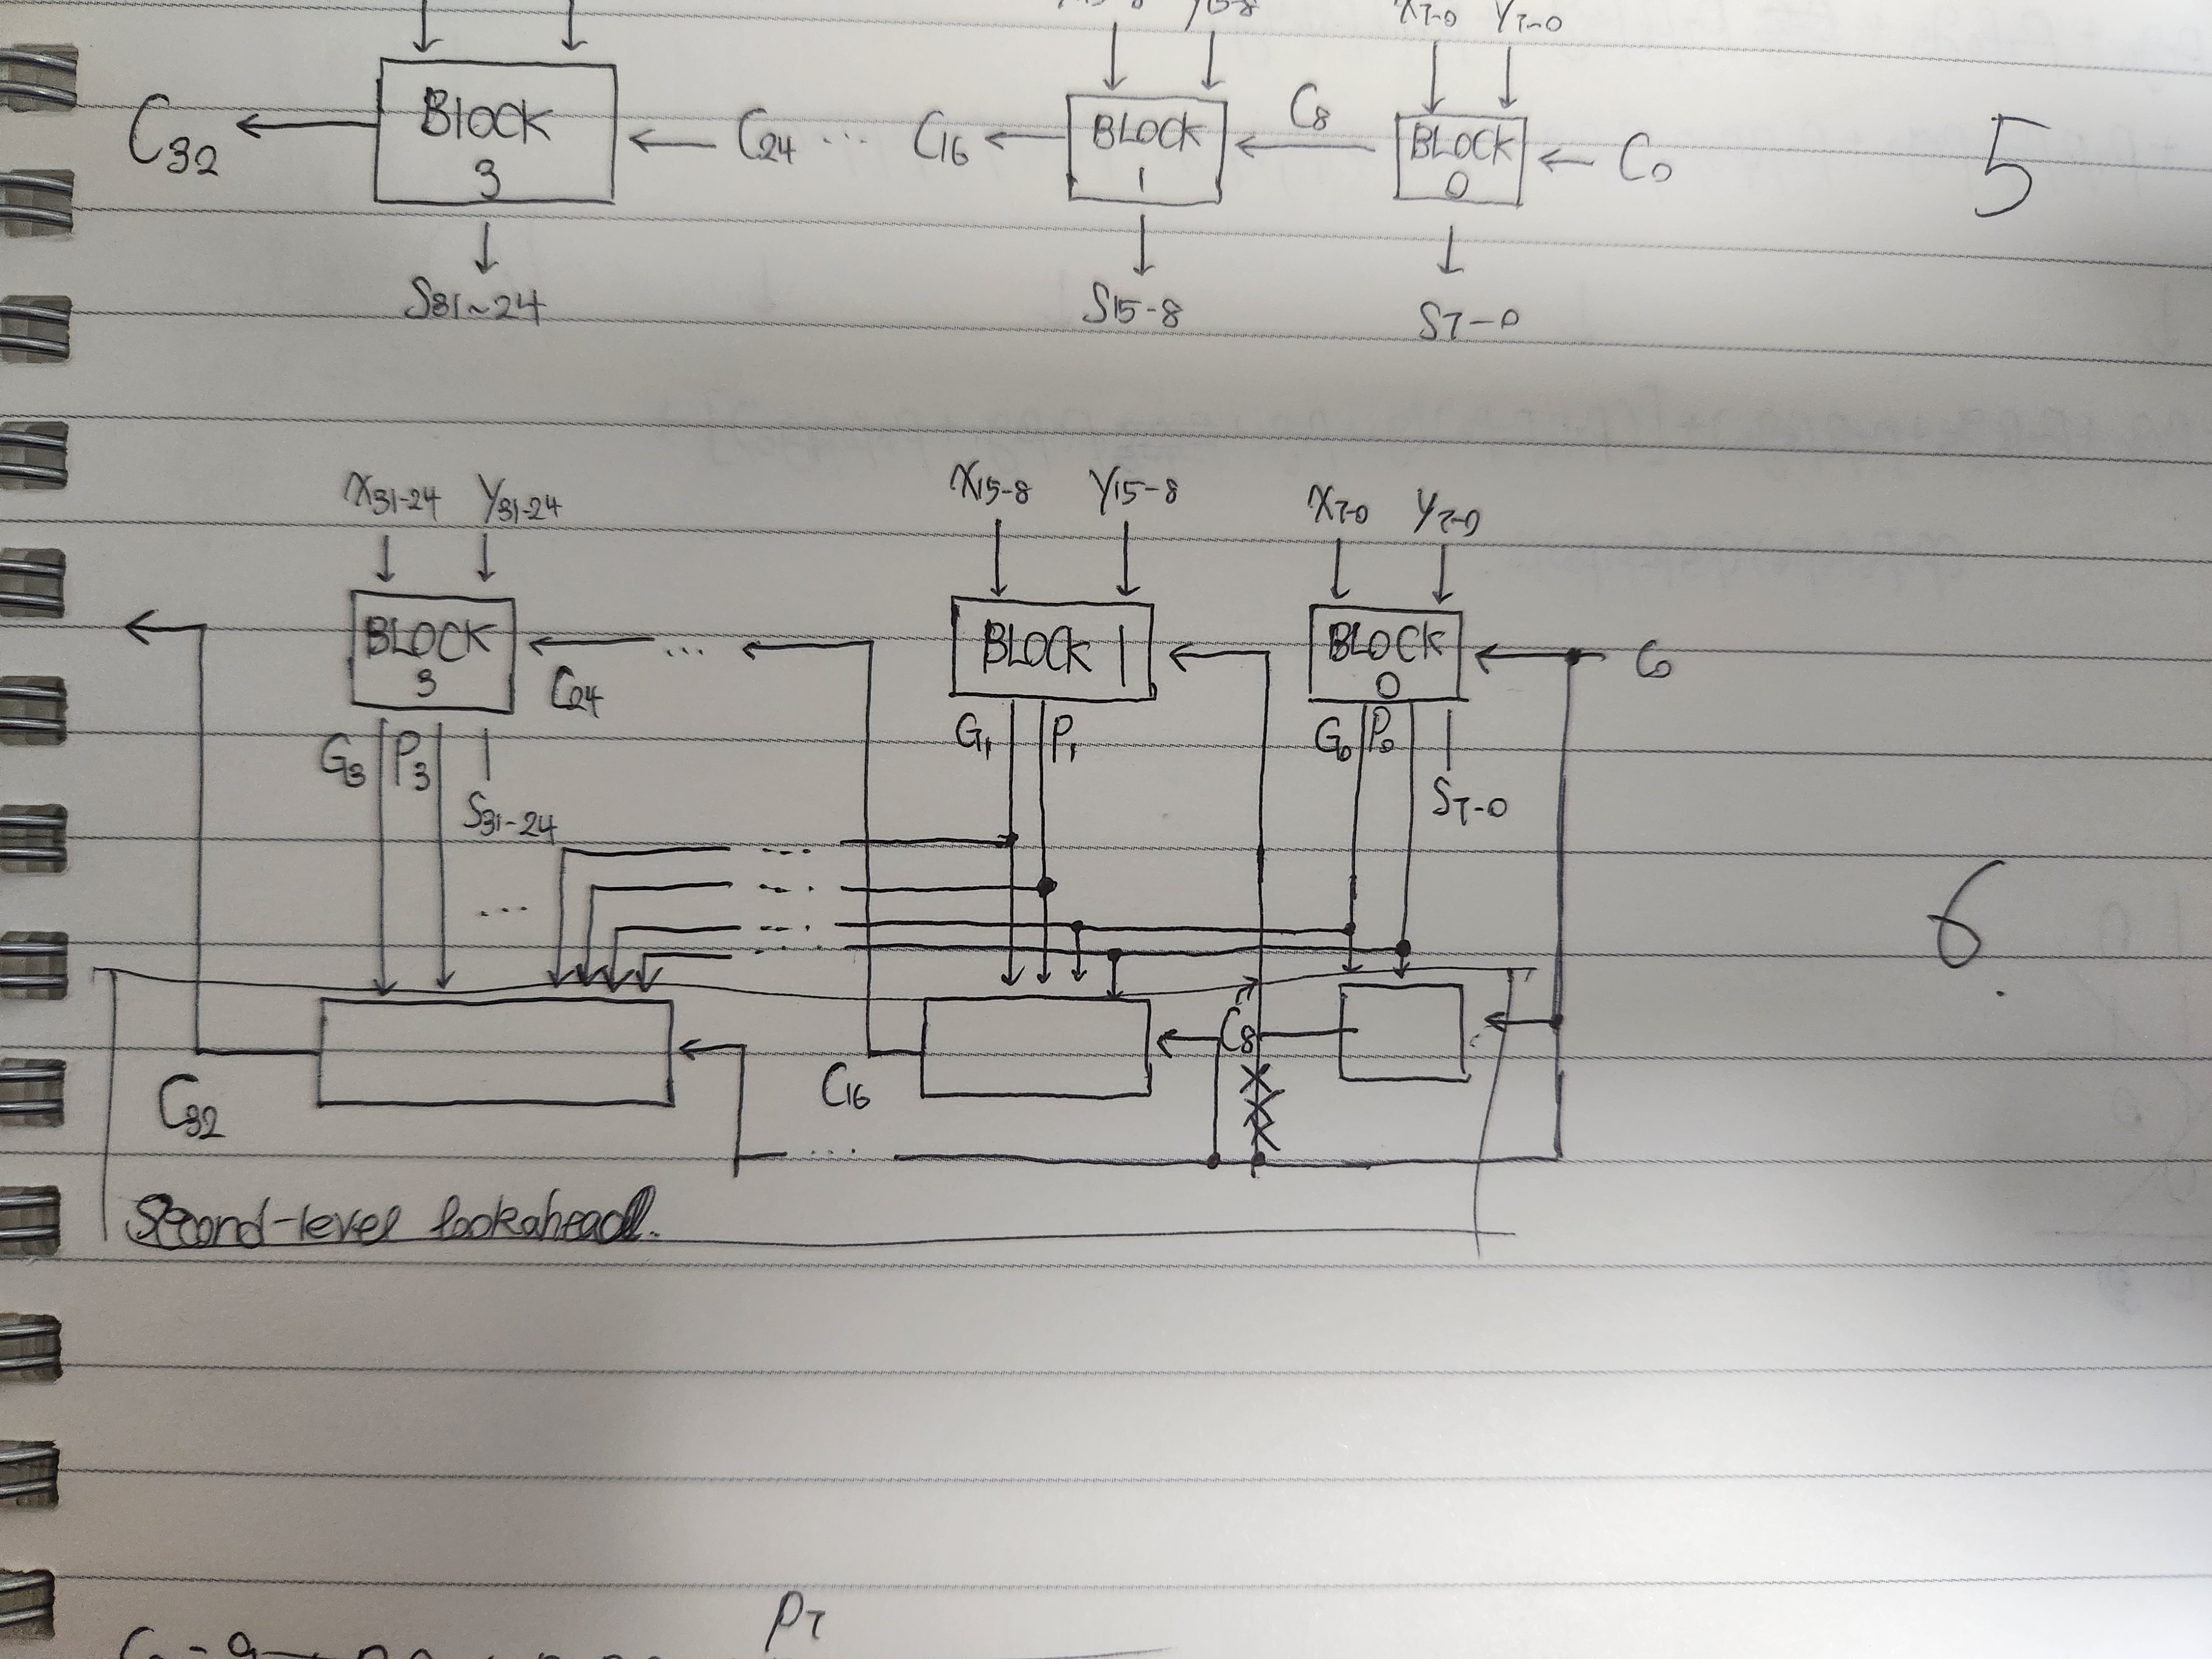 X15-8 Y15-8 X7-0 Y7-0
C32 BLOCK 3 C24 ... C16 BLOCK 1 C8 BLOCK 0 C0 5
S31~24 S15-8 S7-0
X31-24 Y31-24 X15-8 Y15-8 X7-0 Y7-0
BLOCK 3 C24 ... BLOCK 1 BLOCK 0 C0
G3 P3 G1 P1 G0 P0
S31-24 S7-0
6
C32 C16 C8
Second-level lookahead.
P7